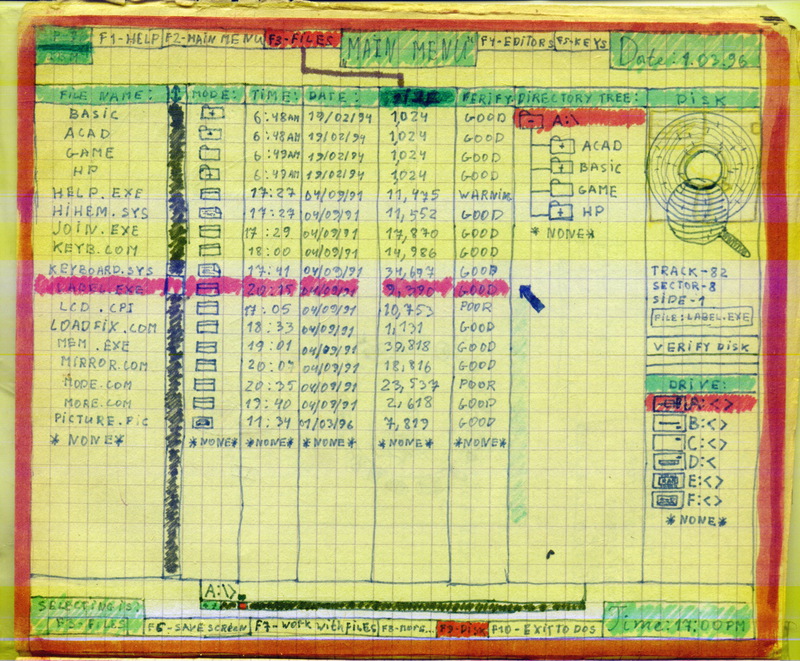 F1-HELP F2-MAIN MENU F3-FILES MAIN MENU F4-EDITORS F5-KEYS Date: 1.03.96
FILE NAME: MODE: TIME: DATE: SIZE VERIFY DIRECTORY TREE: DISK
BASIC 6:48AM 19/02/94 1,024 GOOD A:\
ACAD 6:48AM 19/02/94 1,024 GOOD ACAD
GAME 6:49AM 19/02/94 1,024 GOOD BASIC
HP 6:49AM 19/02/94 1,024 GOOD GAME
HELP.EXE 17:27 04/09/91 11,475 WARNIN HP
HIHEM.SYS 17:27 04/09/91 11,552 GOOD
JOIN.EXE 17:29 04/09/91 17,870 GOOD *NONE*
KEYB.COM 18:00 04/09/91 14,986 GOOD
KEYBOARD.SYS 17:41 04/09/91 34,697 GOOD TRACK-82
LABEL.EXE 20:15 04/09/91 9,390 GOOD SECTOR-8
LCD.CPI 17:05 04/09/91 10,753 POOR SIDE-1
LOADFIX.COM 18:33 04/09/91 1,131 GOOD FILE:LABEL.EXE
MEM.EXE 19:01 04/09/91 39,818 GOOD VERIFY DISK
MIRROR.COM 20:07 04/09/91 18,816 GOOD
MODE.COM 20:35 04/09/91 23,537 POOR DRIVE:
MORE.COM 19:40 04/09/91 2,618 GOOD A:<>
PICTURE.PIC 11:34 01/03/96 7,829 GOOD B:<>
*NONE* *NONE* *NONE* *NONE* *NONE* *NONE C:<>
D:<
E:<>
F:<>
*NONE*
A:\>
SELECTING IS:
F3-FILES F6-SAVE SCREEN F7-WORK WITH FILES F8-MORE... F9-DISK F10-EXIT TO DOS Time: 17:00PM